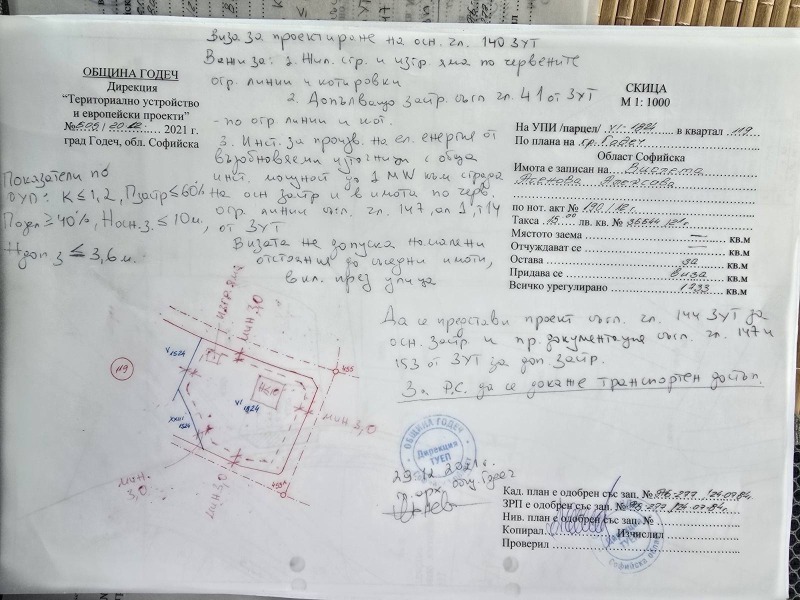 Виза за проектиране на осн. чл. 140 ЗУТ
Важи за: 1. Жил. стр. и изгр. яма по червените
огр. линии и котировки
2. Допълващо застр. съгл. чл. 41 от ЗУТ
- по огр. линии и кот.
3. Инст. за произв. на ел. енергия от
възобновяеми източници с обща
инст. мощност до 1 MW към сграда
на осн. застр. и в имоти по черв.
огр. линии съгл. чл. 147, ал. 1, т. 14
от ЗУТ
Визата не допуска намалени
отстояния до съседни имоти,
вкл. през улица
ОБЩИНА ГОДЕЧ
Дирекция
“Териториално устройство
и европейски проекти”
№ 505/20.12. 2021 г.
град Годеч, обл. Софийска
Показатели по
ОУП: K ≤ 1,2, Пзастр ≤ 60%
Позел ≥ 40%, Hосн.з. ≤ 10м,
Hдоп з ≤ 3,6 м.
СКИЦА
М 1: 1000
На УПИ /парцел/ VI-1824 в квартал 119
По плана на гр. Годеч
Област Софийска
Имота е записан на Виолета
по нот. акт № 190/12 г.
Такса 15.00 лв. кв. №
Мястото заема — кв.м
Отчуждават се — кв.м
Остава за кв.м
Придава се виза кв.м
Всичко урегулирано 1233 кв.м
Да се представи проект съгл. чл. 144 ЗУТ за
осн. застр. и пр. документация съгл. чл. 147 и
153 от ЗУТ за доп. застр.
За Р.С. да се докаже транспортен достъп.
изгр. яма
мин 3,0
V 1524
119
VI 1824
XXIII 1524
мин 3,0
мин. 3,0
мин 3,0
ОБЩИНА ГОДЕЧ
Дирекция
ТУЕП
29.12.2021 г.
гл. арх. общ. Годеч
Кад. план е одобрен със зап. №
ЗРП е одобрен със зап. №
Нив. план е одобрен със зап. №
Копирал Изчислил
Проверил
ТУЕП
Софийска област